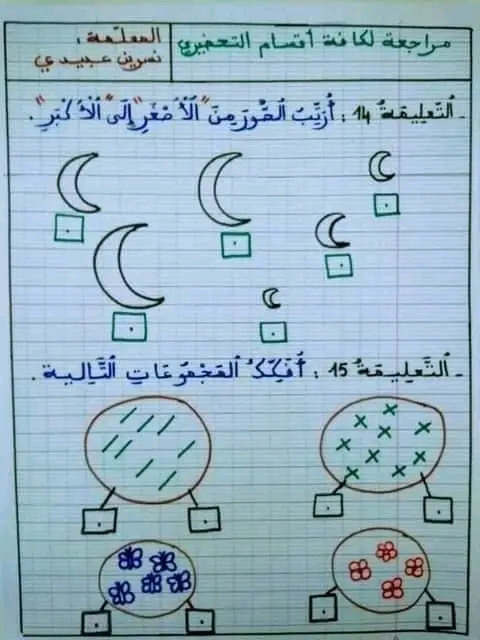 مراجعة لكافة أقسام التحضيري
المعلمة :
نسرين عبيدي
- التَّعليمَةُ 14 : أُرَتِّبُ الصُّوَرَ مِنَ "الْأَصْغَرِ" إِلَى "الْأَكْبَرِ".
- التَّعليمَةُ 15 : أُفَكِّكُ المَجْمُوعَاتِ التَّالِيةَ .